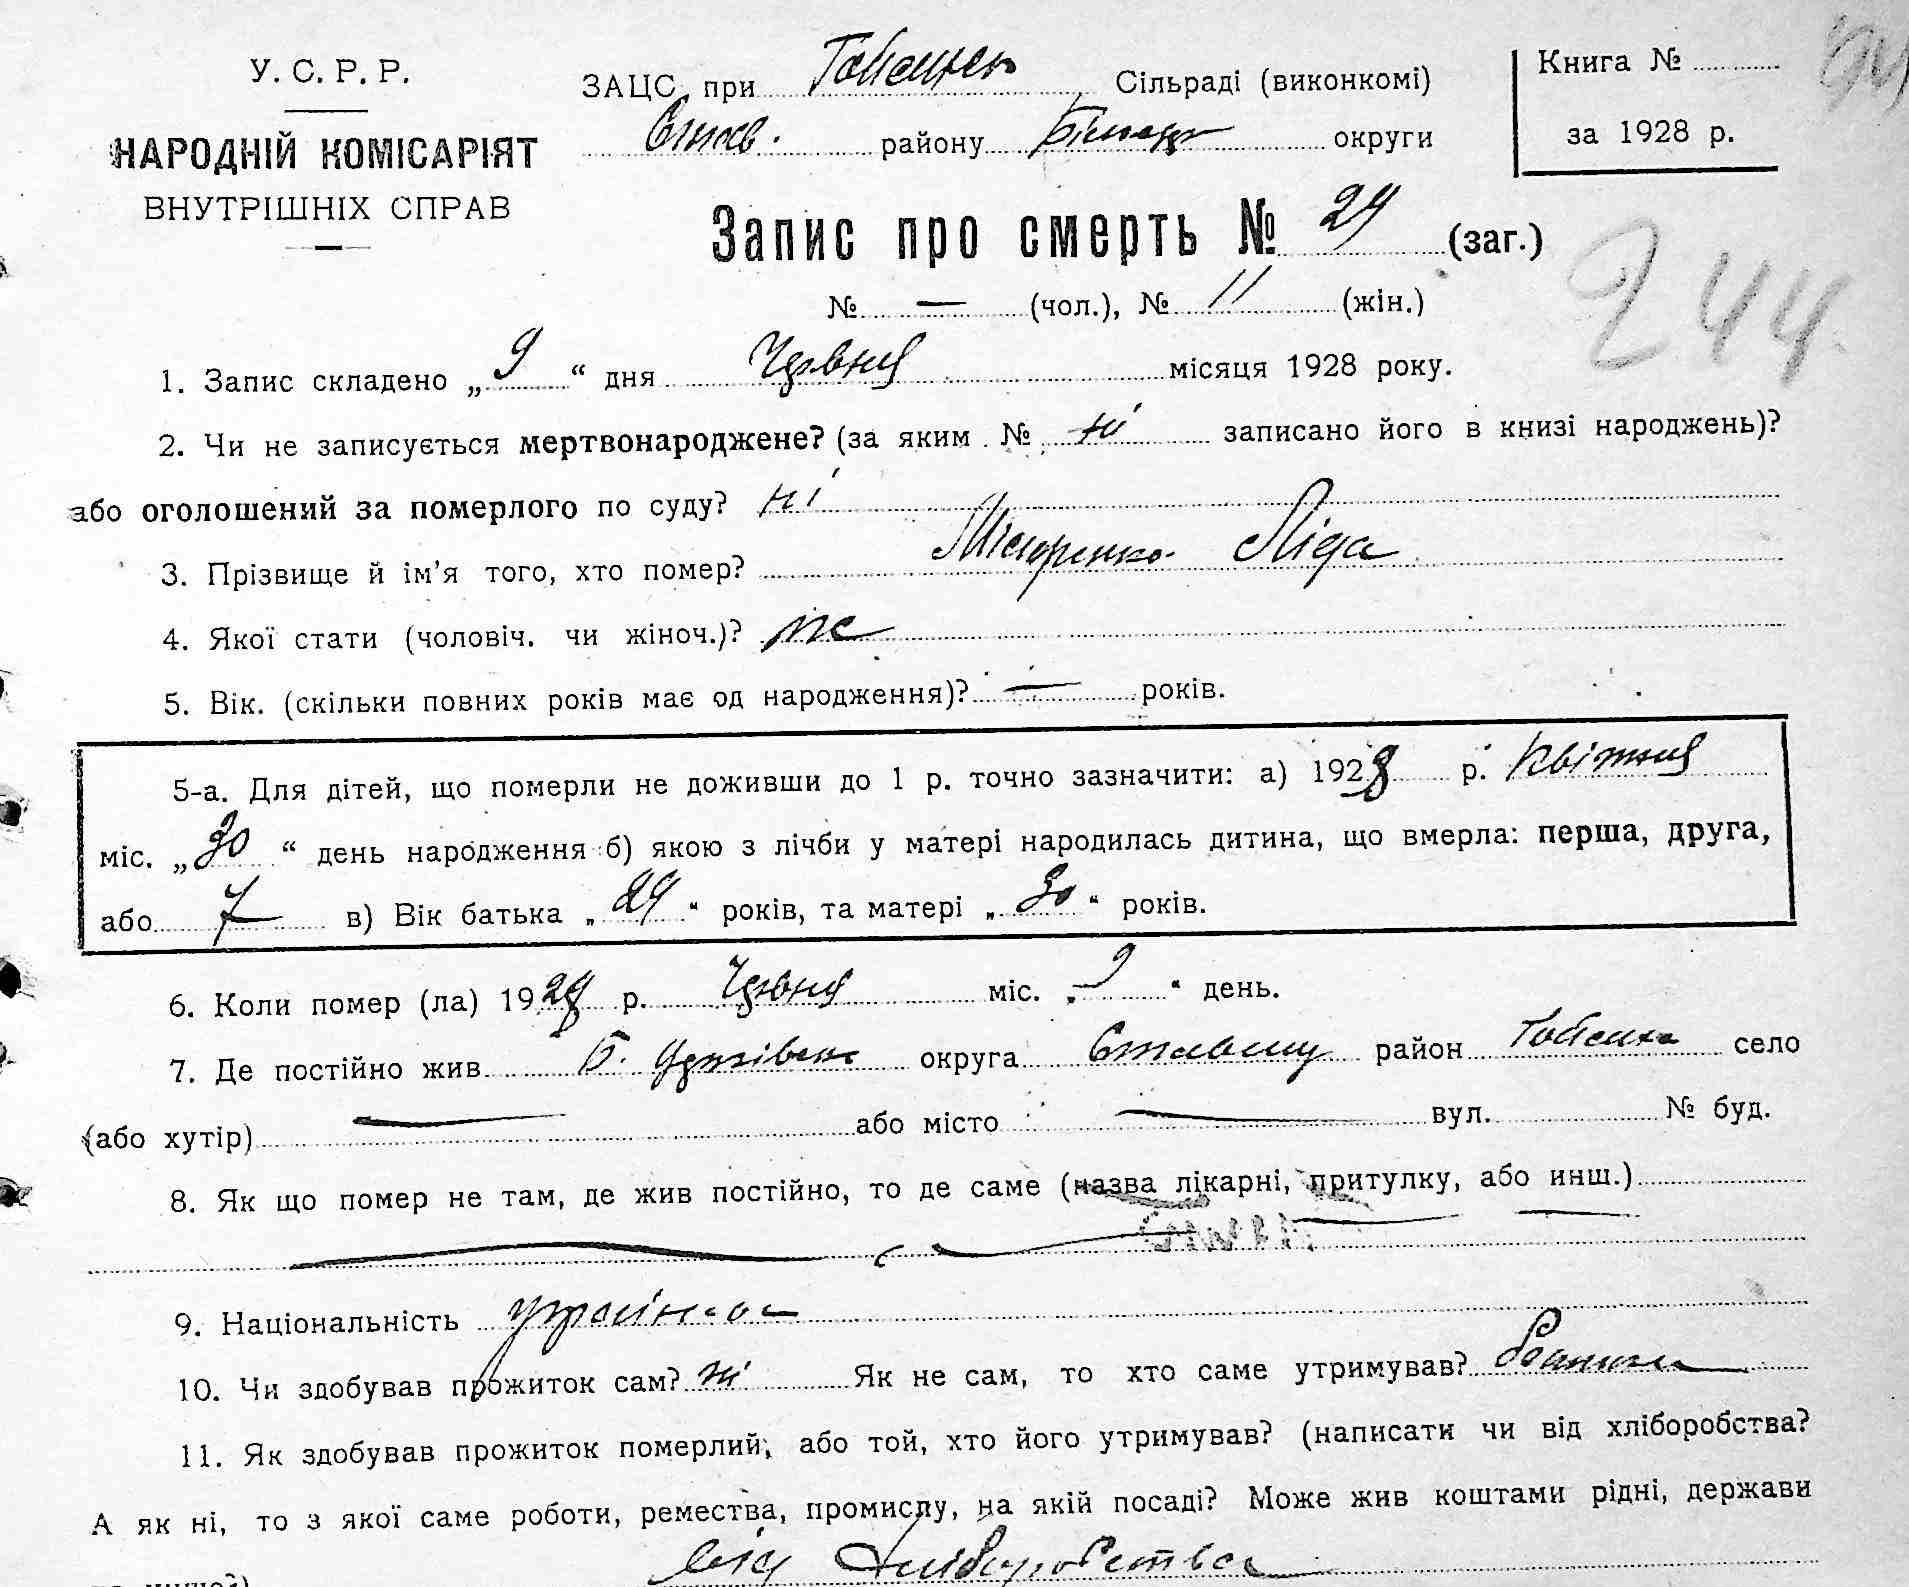 У. С. Р. Р.
НАРОДНІЙ КОМІСАРІЯТ
ВНУТРІШНІХ СПРАВ
ЗАЦС при Сільраді (виконкомі)
району округи
Книга №
за 1928 р.
Запис про смерть № 24 (заг.)
№ — (чол.), № 11 (жін.)
244
1. Запис складено „9“ дня Червня місяця 1928 року.
2. Чи не записується мертвонароджене? (за яким № ні записано його в книзі народжень)?
або оголошений за померлого по суду? ні
3. Прізвище й ім'я того, хто помер? Ліда
4. Якої стати (чоловіч. чи жіноч.)? ж
5. Вік. (скільки повних років має од народження)? — років.
5-а. Для дітей, що померли не доживши до 1 р. точно зазначити: а) 1928 р. Квітня
міс. „30“ день народження б) якою з лічби у матері народилась дитина, що вмерла: перша, друга,
або 7 в) Вік батька „29“ років, та матері „30“ років.
6. Коли помер (ла) 1928 р. Червня міс. „9“ день.
7. Де постійно жив Б. Церківська округа район село
(або хутір) — або місто — вул. № буд.
8. Як що помер не там, де жив постійно, то де саме (назва лікарні, притулку, або инш.)
9. Національність українка
10. Чи здобував прожиток сам? ні Як не сам, то хто саме утримував? батьки
11. Як здобував прожиток померлий, або той, хто його утримував? (написати чи від хліборобства?
А як ні, то з якої саме роботи, ремества, промислу, на якій посаді? Може жив коштами рідні, держави
від хліборобства